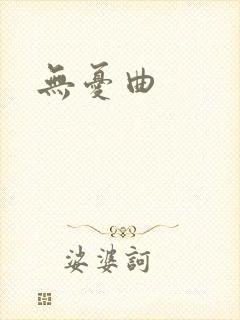 無憂曲
娑婆訶